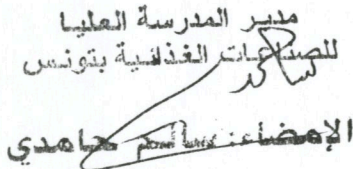 مدير المدرسة العليا
للصناعات الغذائية بتونس
الإمضاء: سالم حامدي